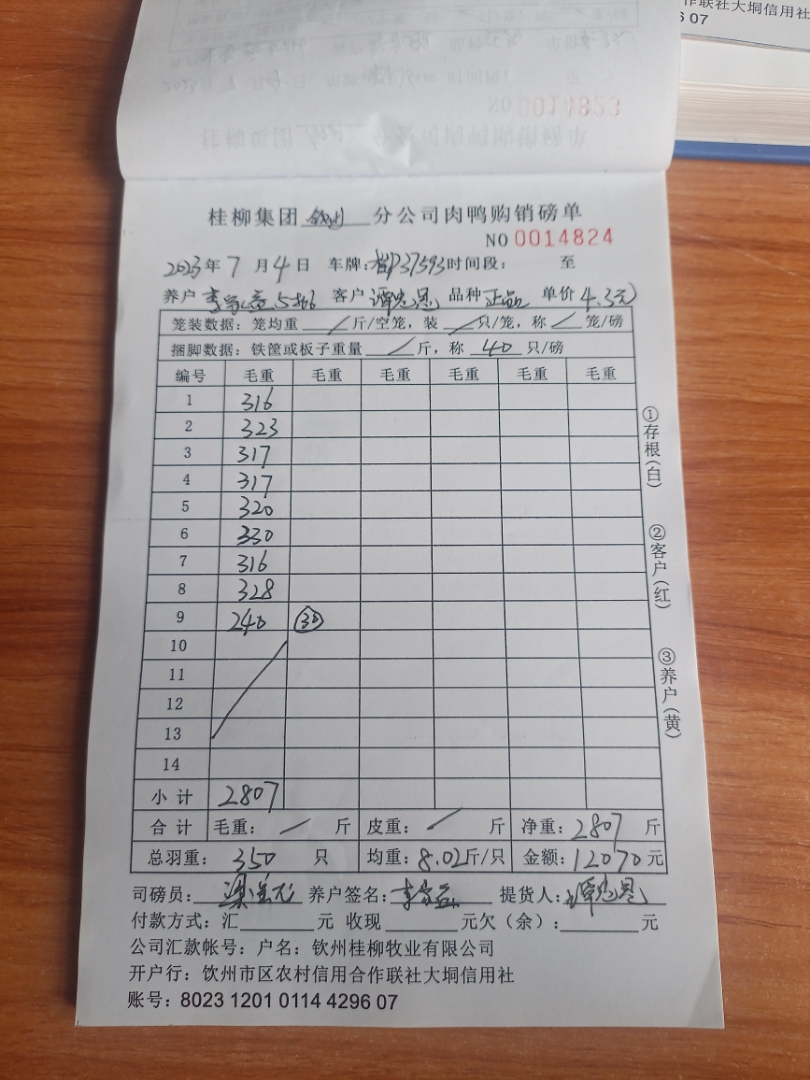 作联社大垌信用社
6 07
NO 0014823
桂柳集团 钦州 分公司肉鸭购销磅单
NO 0014824
2023年 7 月 4 日 车牌: 37593 时间段: 至
养户 客户 谭忠恩 品种 正品 单价 4.3元
笼装数据: 笼均重 / 斤/空笼, 装 / 只/笼, 称 / 笼/磅
捆脚数据: 铁筐或板子重量 / 斤, 称 40 只/磅
编号 毛重 毛重 毛重 毛重 毛重 毛重
1 316
2 323
3 317
4 317
5 320
6 330
7 316
8 328
9 240 30
10
11
12
13
14
小计 2807
合计 毛重: / 斤 皮重: / 斤 净重: 2807 斤
总羽重: 350 只 均重: 8.02斤/只 金额: 12070 元
司磅员: 养户签名: 提货人: 谭忠恩
付款方式: 汇 元 收现 元欠(余): 元
公司汇款帐号: 户名: 钦州桂柳牧业有限公司
开户行: 饮州市区农村信用合作联社大垌信用社
账号: 8023 1201 0114 4296 07
①存根(白)
②客户(红)
③养户(黄)